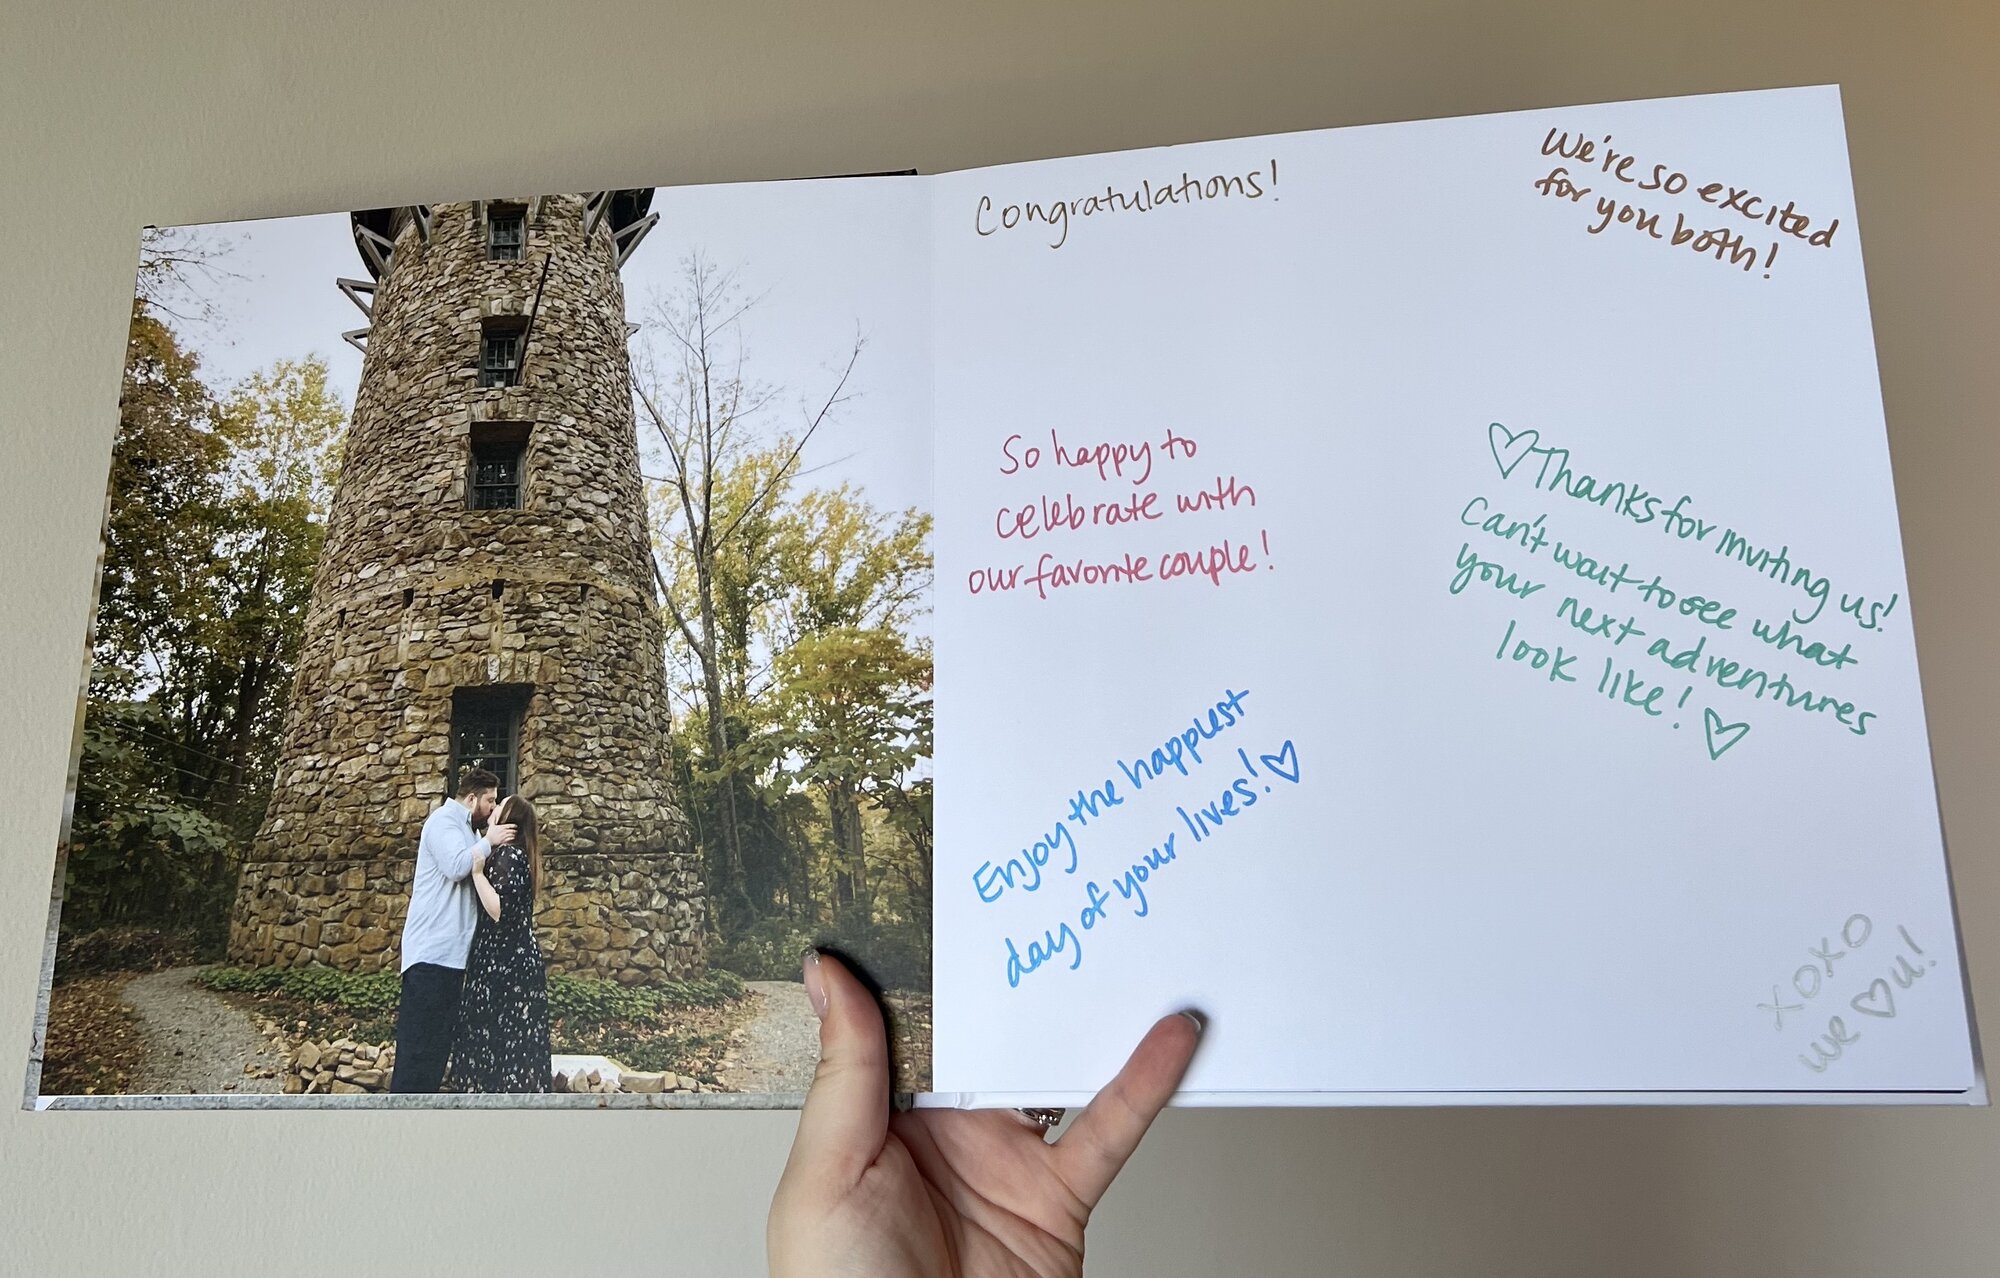 Congratulations!
We're so excited
for you both!
So happy to
celebrate with
our favorite couple!
♡ Thanks for inviting us!
Can't wait to see what
your next adventures
look like! ♡
Enjoy the happiest
day of your lives! ♡
xoxo
we ♡ u!